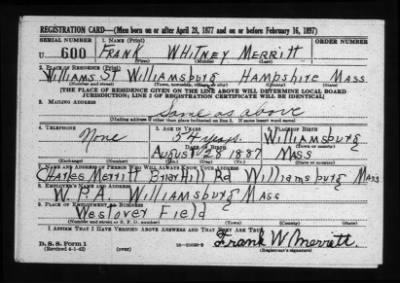 REGISTRATION CARD—(Men born on or after April 28, 1877 and on or before February 16, 1897)
SERIAL NUMBER 1. NAME (Print) ORDER NUMBER
U 600 FRANK WHITNEY MERRITT
(First) (Middle) (Last)
2. PLACE OF RESIDENCE (Print)
Williams St Williamsburg Hampshire Mass
(Number and street) (Town, township, village, or city) (County) (State)
[THE PLACE OF RESIDENCE GIVEN ON THE LINE ABOVE WILL DETERMINE LOCAL BOARD
JURISDICTION; LINE 2 OF REGISTRATION CERTIFICATE WILL BE IDENTICAL]
3. MAILING ADDRESS
Same as above
[Mailing address if other than place indicated on line 2. If same insert word same]
4. TELEPHONE 5. AGE IN YEARS 6. PLACE OF BIRTH
None 54 years Williamsburg
DATE OF BIRTH (Town or county)
AUGUST 28 1887 MASS
(Exchange) (Number) (Mo.) (Day) (Yr.) (State or country)
7. NAME AND ADDRESS OF PERSON WHO WILL ALWAYS KNOW YOUR ADDRESS
Charles Merritt Briar Hill Rd Williamsburg Mass
8. EMPLOYER'S NAME AND ADDRESS
W.P.A. Williamsburg Mass
9. PLACE OF EMPLOYMENT OR BUSINESS
Westover Field
(Number and street or R. F. D. number) (Town) (County) (State)
I AFFIRM THAT I HAVE VERIFIED ABOVE ANSWERS AND THAT THEY ARE TRUE.
D. S. S. Form 1
(Revised 4-1-42) (over)
Frank W Merritt
(Registrant's signature)